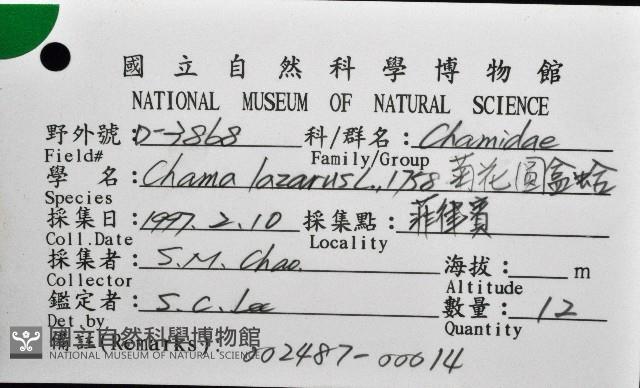 國立自然科學博物館
NATIONAL MUSEUM OF NATURAL SCIENCE
野外號:D-3868 科/群名:Chamidae
Field# Family/Group
學 名:Chama lazarus L., 1758 菊花圓盒蛤
Species
採集日:1997. 2. 10 採集點:菲律賓
Coll.Date Locality
採集者:S. M. Chao. 海拔: m
Collector Altitude
鑑定者:S. C. Lee 數量:12
Det.by Quantity
國立自然科學博物館
NATIONAL MUSEUM OF NATURAL SCIENCE
(Remarks): 002487-00014